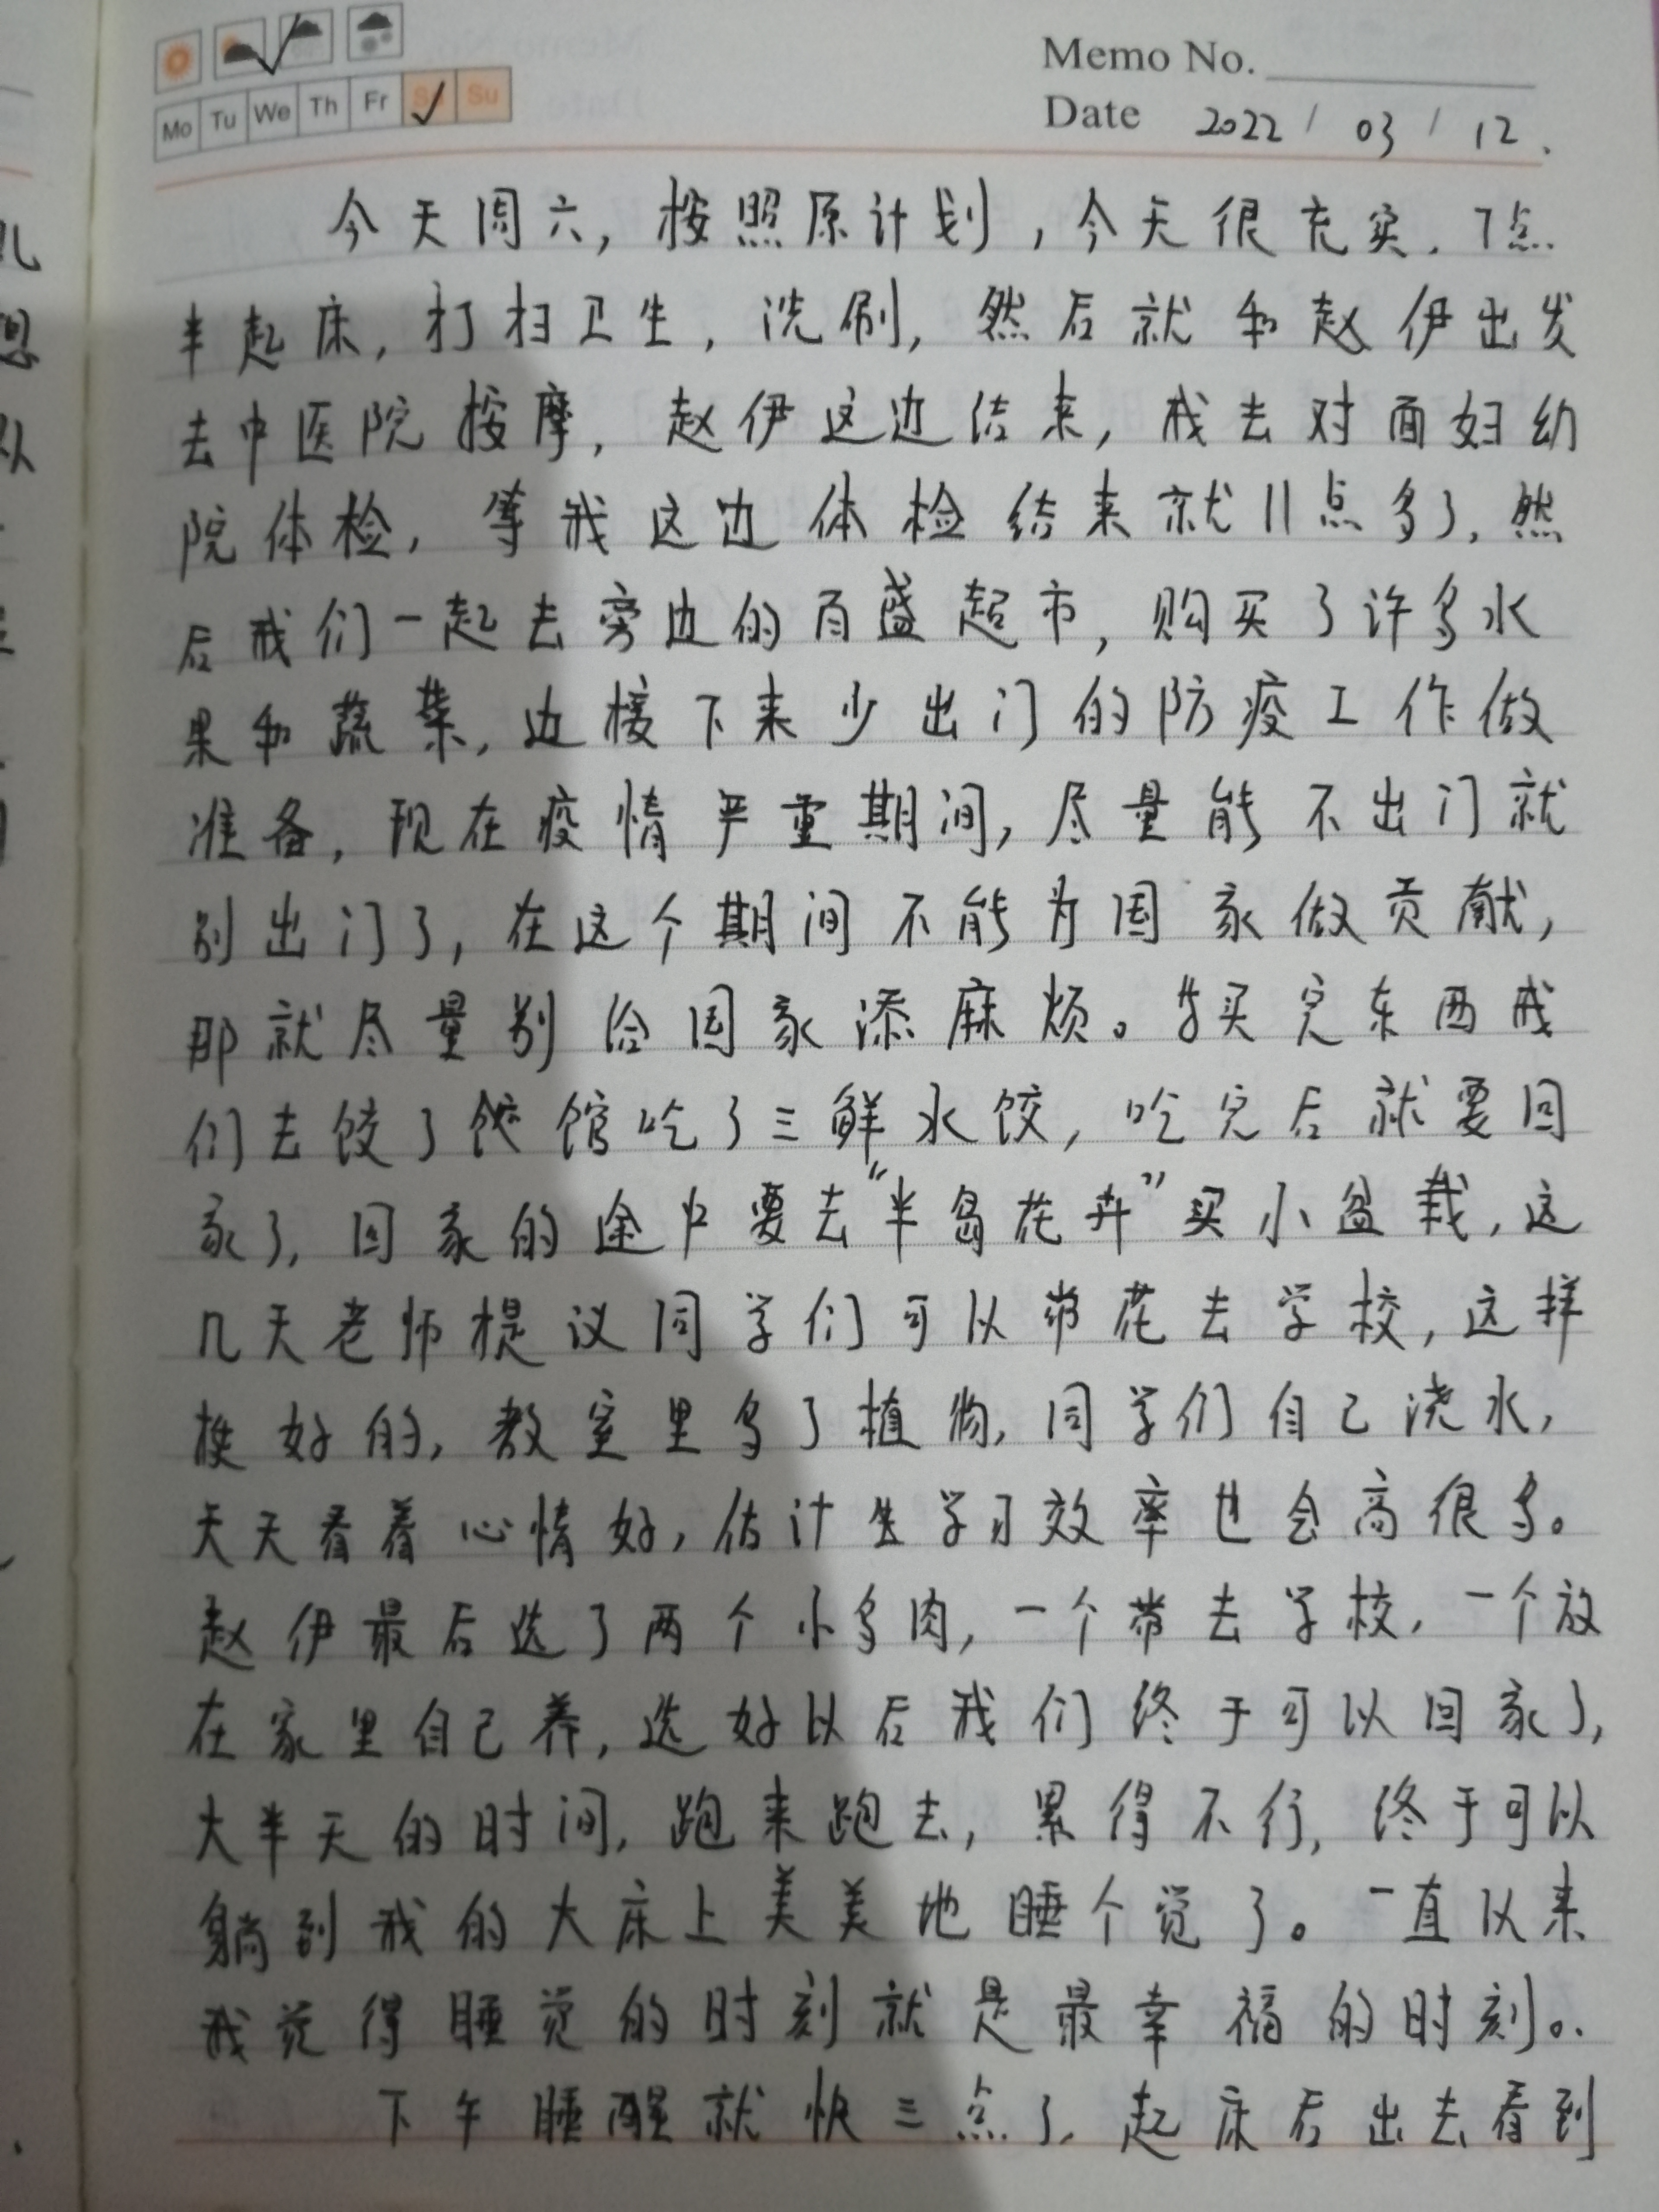 Memo No.
Mo Tu We Th Fr Sa Su
Date 2022 / 03 / 12.
今天周六,按照原计划,今天很充实.7点
半起床,打扫卫生,洗刷,然后就和赵伊出发
去中医院按摩,赵伊这边结束,我去对面妇幼
院体检,等我这边体检结束就11点多了,然
后我们一起去旁边的百盛超市,购买了许多水
果和蔬菜,边接下来少出门的防疫工作做
准备,现在疫情严重期间,尽量能不出门就
别出门了,在这个期间不能为国家做贡献,
那就尽量别给国家添麻烦。买完东西我
们去饺了饺馆吃了三鲜水饺,吃完后就要回
家了,回家的途中要去“半岛花卉”买小盆栽,这
几天老师提议同学们可以带花去学校,这样
挺好的,教室里多了植物,同学们自己浇水,
天天看着心情好,估计生学习效率也会高很多。
赵伊最后选了两个小多肉,一个带去学校,一个放
在家里自己养,选好以后我们终于可以回家了,
大半天的时间,跑来跑去,累得不行,终于可以
躺到我的大床上美美地睡个觉了。一直以来
我觉得睡觉的时刻就是最幸福的时刻。
下午睡醒就快三点了,起床后出去看到